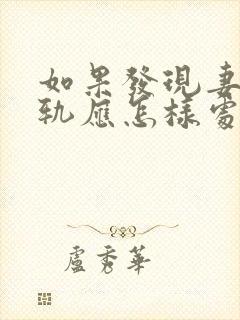 如果發現妻
軌應怎樣處
盧秀華